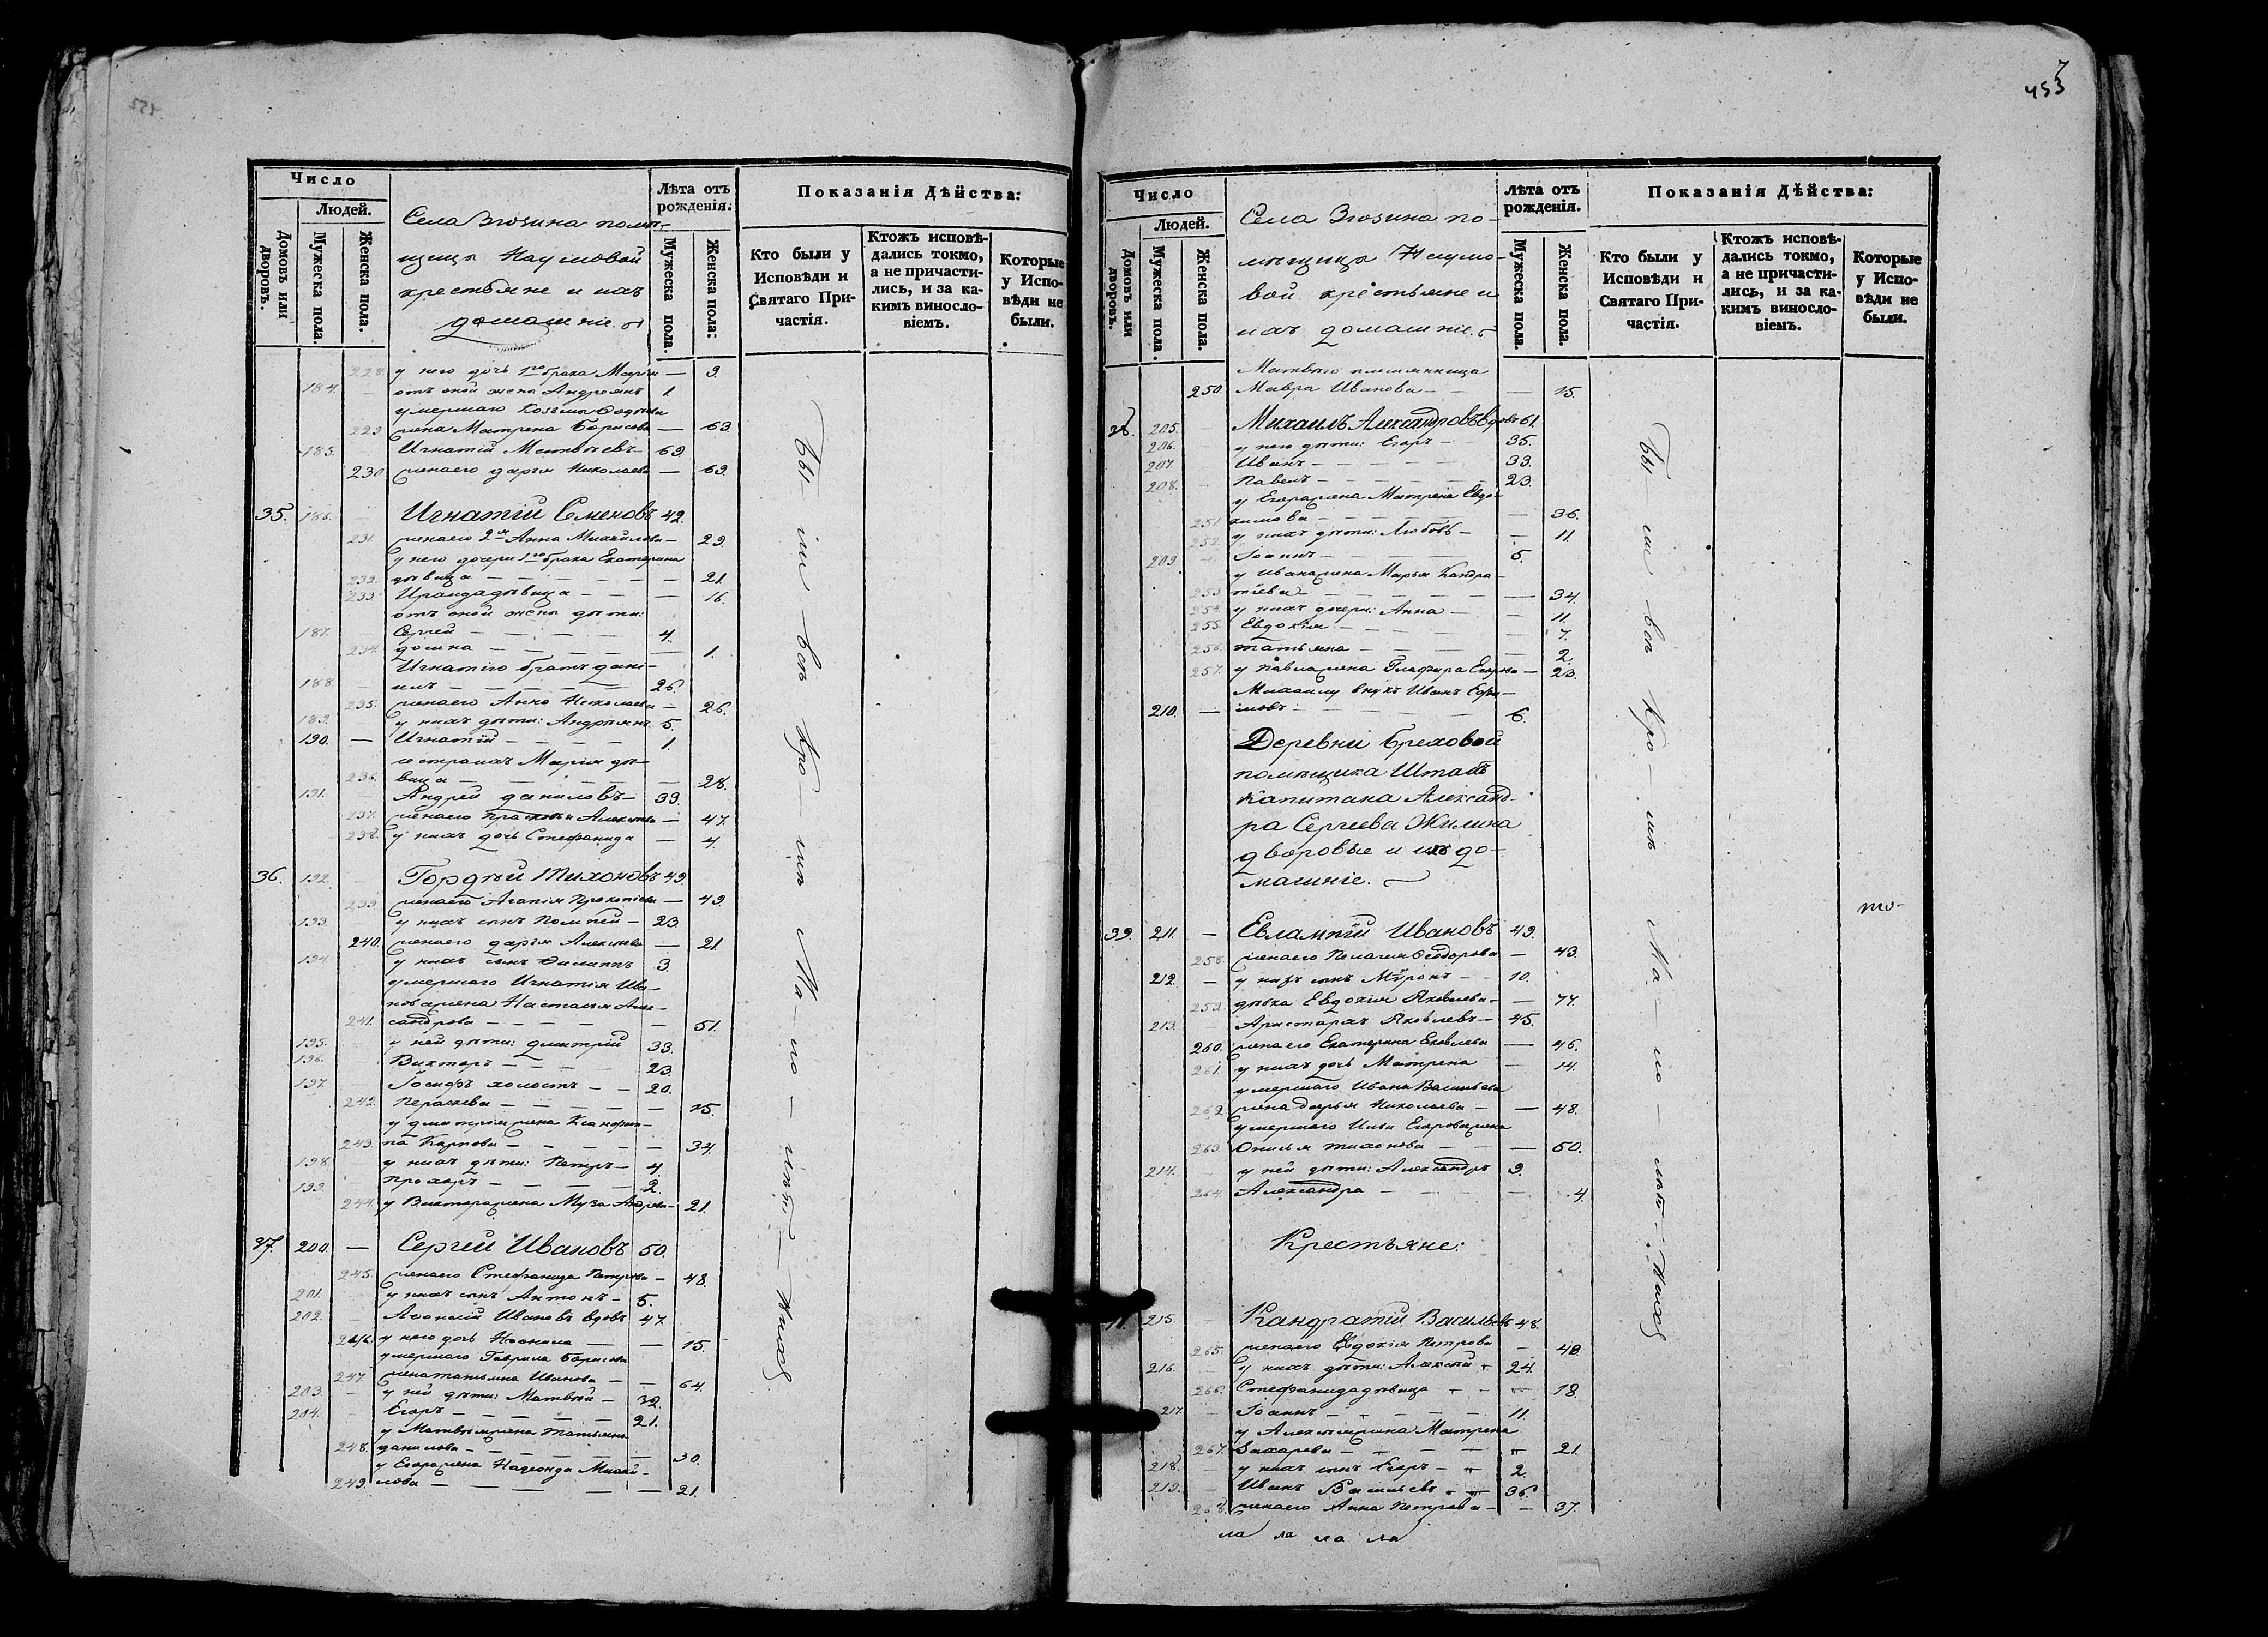 453
7
Число
Людей.
Домовъ или дворовъ.
Мужеска пола.
Женска пола.
Села Зюзина помѣ-
щицы Наумовой
крестьяне и ихъ
домашніе.
Лѣта отъ рожденія.
Мужеска пола.
Женска пола:
Показанія Дѣйства:
Кто были у Исповѣди и Святаго Причастія.
Ктожъ исповѣдались токмо, а не причастились, и за какимъ винословіемъ.
Которые у Исповѣди не были.
228. у него дочь 1го брака Марья — 9.
184. отъ оной жены Андреянъ 1.
умершаго Козьмы
229. жена Матрена Борисова — 63.
185. Игнатій Матвѣевъ 69.
230 жена его Дарья Николаева — 69.
35. 186. Игнатій Семеновъ 42.
231. жена его 2я Анна Михайлова — 29.
у него дочери 1го брака Екатерина
232. дѣвица — 21.
233. Ираида дѣвица — 16.
отъ оной жены дѣти:
187. Сергей — 4.
234. Домна — 1.
Игнатію братъ Дани-
188. илъ — 26.
235. жена его Анна Николаева — 26.
189. у нихъ дѣти: Андреянъ 5.
190. — Игнатій — 1.
сестра ихъ Марія дѣ-
236. вица — 28.
191. Андрей Даниловъ — 39.
237. жена его Прасковья Алексѣева — 47.
238. у нихъ дочь Стефанида — 4.
36. 192. Гордѣй Тихоновъ 49.
239. жена его Агапія Прокопіева — 49.
193. у нихъ сынъ Помпей — 23.
240. жена его Дарья Алексѣева — 21.
194. у нихъ сынъ Филиппъ 3.
умершаго Игнатія Ива-
нова жена Настасья Алек-
241. сандрова — 51.
195. у ней дѣти: Дмитрій 33.
196. Викторъ — 23.
197. Іосифъ холостъ — 20.
242. Параскева — 15.
у Дмитрія жена Ксанфип-
243. па Карпова — 34.
198. у нихъ дѣти: Петръ — 4.
199. Прохоръ — 2.
244. у Виктора жена Муза Андреева — 21.
37. 200. — Сергей Ивановъ 50.
245. жена его Стефанида Петрова — 48.
201. у нихъ сынъ Антонъ — 5.
202. Афонасій Ивановъ вдовъ 47.
246. у него дочь Неонила — 15.
умершаго Гаврила Борисова
247. жена Татьяна Иванова — 64.
203. у ней дѣти: Матвѣй — 32.
204. Егоръ — 21.
у Матвѣя жена Татьяна
248. Данилова — 30.
у Егора жена Надежда Михай-
249. лова — 21.
Бы — ли всѣ кро — мѣ ма — ло — лѣт — нихъ
Число
Людей.
Домовъ или дворовъ.
Мужеска пола.
Женска пола.
Села Зюзина по-
мѣщицы Наумо-
вой крестьяне и
ихъ домашніе.
Лѣта отъ рожденія.
Мужеска пола.
Женска пола.
Показанія Дѣйства:
Кто были у Исповѣди и Святаго Причастія.
Ктожъ исповѣдались токмо, а не причастились, и за какимъ винословіемъ.
Которые у Исповѣди не были.
Матвѣю племянница
250. Мавра Иванова — 15.
38. 205. Михаилъ Александровъ вдовъ 61.
206. у него дѣти: Егоръ — 35.
207. Иванъ — 33.
208. Павелъ — 23.
у Егора жена Матрена Евдо-
251. кимова — 36.
252. у нихъ дѣти: Любовь — 11.
209. Іоаннъ — 5.
у Ивана жена Марья Кандра-
253. тьева — 34.
254. у нихъ дочери: Анна — 11.
255. Евдокія — 7.
256. Татьяна — 2.
257. у Павла жена Глафира Егорова — 23.
Михаилу внукъ Иванъ Ефи-
210. — мовъ — 6.
Деревни Бреховой
помѣщика Штабъ
Капитана Александ-
ра Сергеева Жилина
дворовые и ихъ до-
машніе.
39. 211. — Евлампій Ивановъ 49.
258. жена его Пелагея Ѳеодорова — 43.
212. — у нихъ сынъ Миронъ — 10.
259. дѣвка Евдокія Яковлева — 44.
213. Аристархъ Яковлевъ — 45.
260. жена его Екатерина Яковлева — 46.
261 у нихъ дочь Матрена — 14.
умершаго Ивана Васильева
262. жена Дарья Николаева — 48.
умершаго Ильи Егорова жена
263. Онисья Тихонова — 50.
214. у ней дѣти: Александръ 9.
264. Александра — 4.
Крестьяне:
215. Кандратій Васильевъ 48.
265. жена его Евдокія Петрова — 48.
216. у нихъ дѣти: Алексѣй 24.
266. Стефанида дѣвица — 18.
217. Іоаннъ — 11.
у Алексѣя жена Матрена
267. Захарова — 21.
218. у нихъ сынъ Егоръ — 2.
219. Иванъ Васильевъ 36.
268. жена его Анна Петрова — 37.
Бы — ли всѣ кро — мѣ ма — ло — лѣт — нихъ
ла ла ла ла